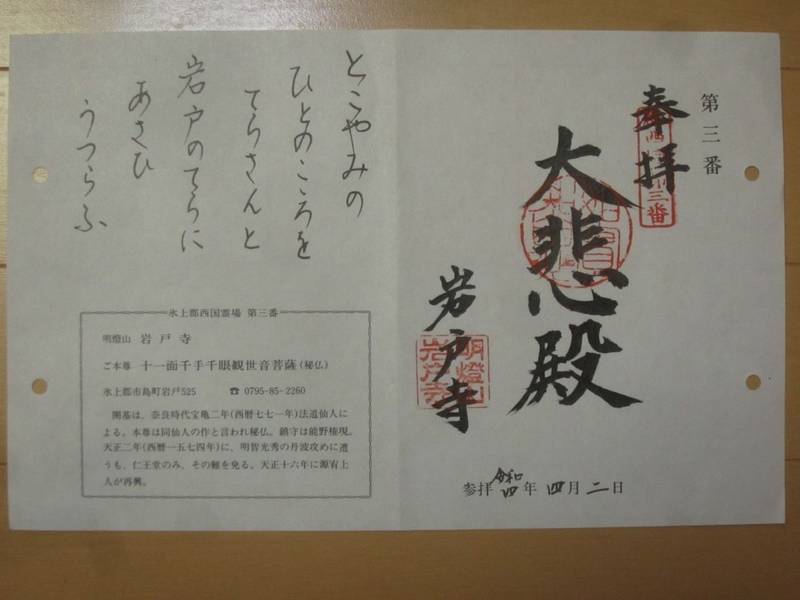 第三番
奉拝
大悲殿
岩戸寺
明燈山
岩戸寺
参拝 令和四年 四月 二日
とこやみの
ひとのこころを
てらさんと
岩戸のてらに
あさひ
うつらふ
氷上郡西国霊場 第三番
明燈山 岩戸寺
ご本尊 十一面千手千眼観世音菩薩(秘仏)
氷上郡市島町岩戸525 ☎ 0795-85-2260
開基は、奈良時代宝亀二年(西暦七七一年)法道仙人に
よる。本尊は同仙人の作と言われ秘仏。鎮守は熊野権現。
天正二年(西暦一五七四年)に、明智光秀の丹波攻めに遭
うも、仁王堂のみ、その難を免る。天正十六年に源宥上
人が再興。